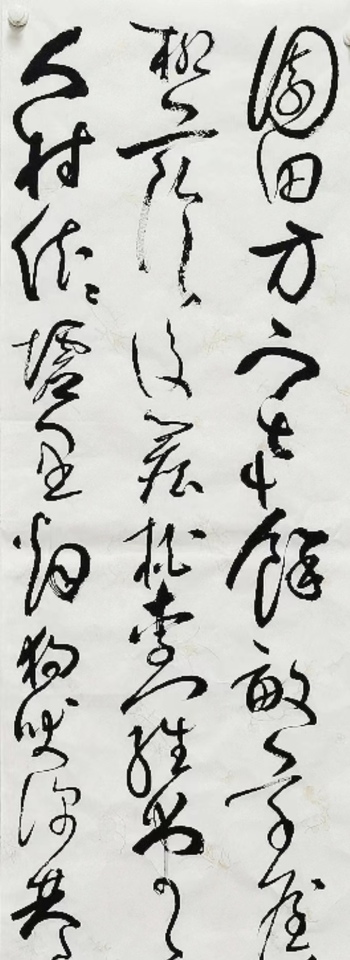 園田方宅十餘畝草屋
柳蔭後簷桃李羅堂前
人村依々墟里烟狗吠深巷